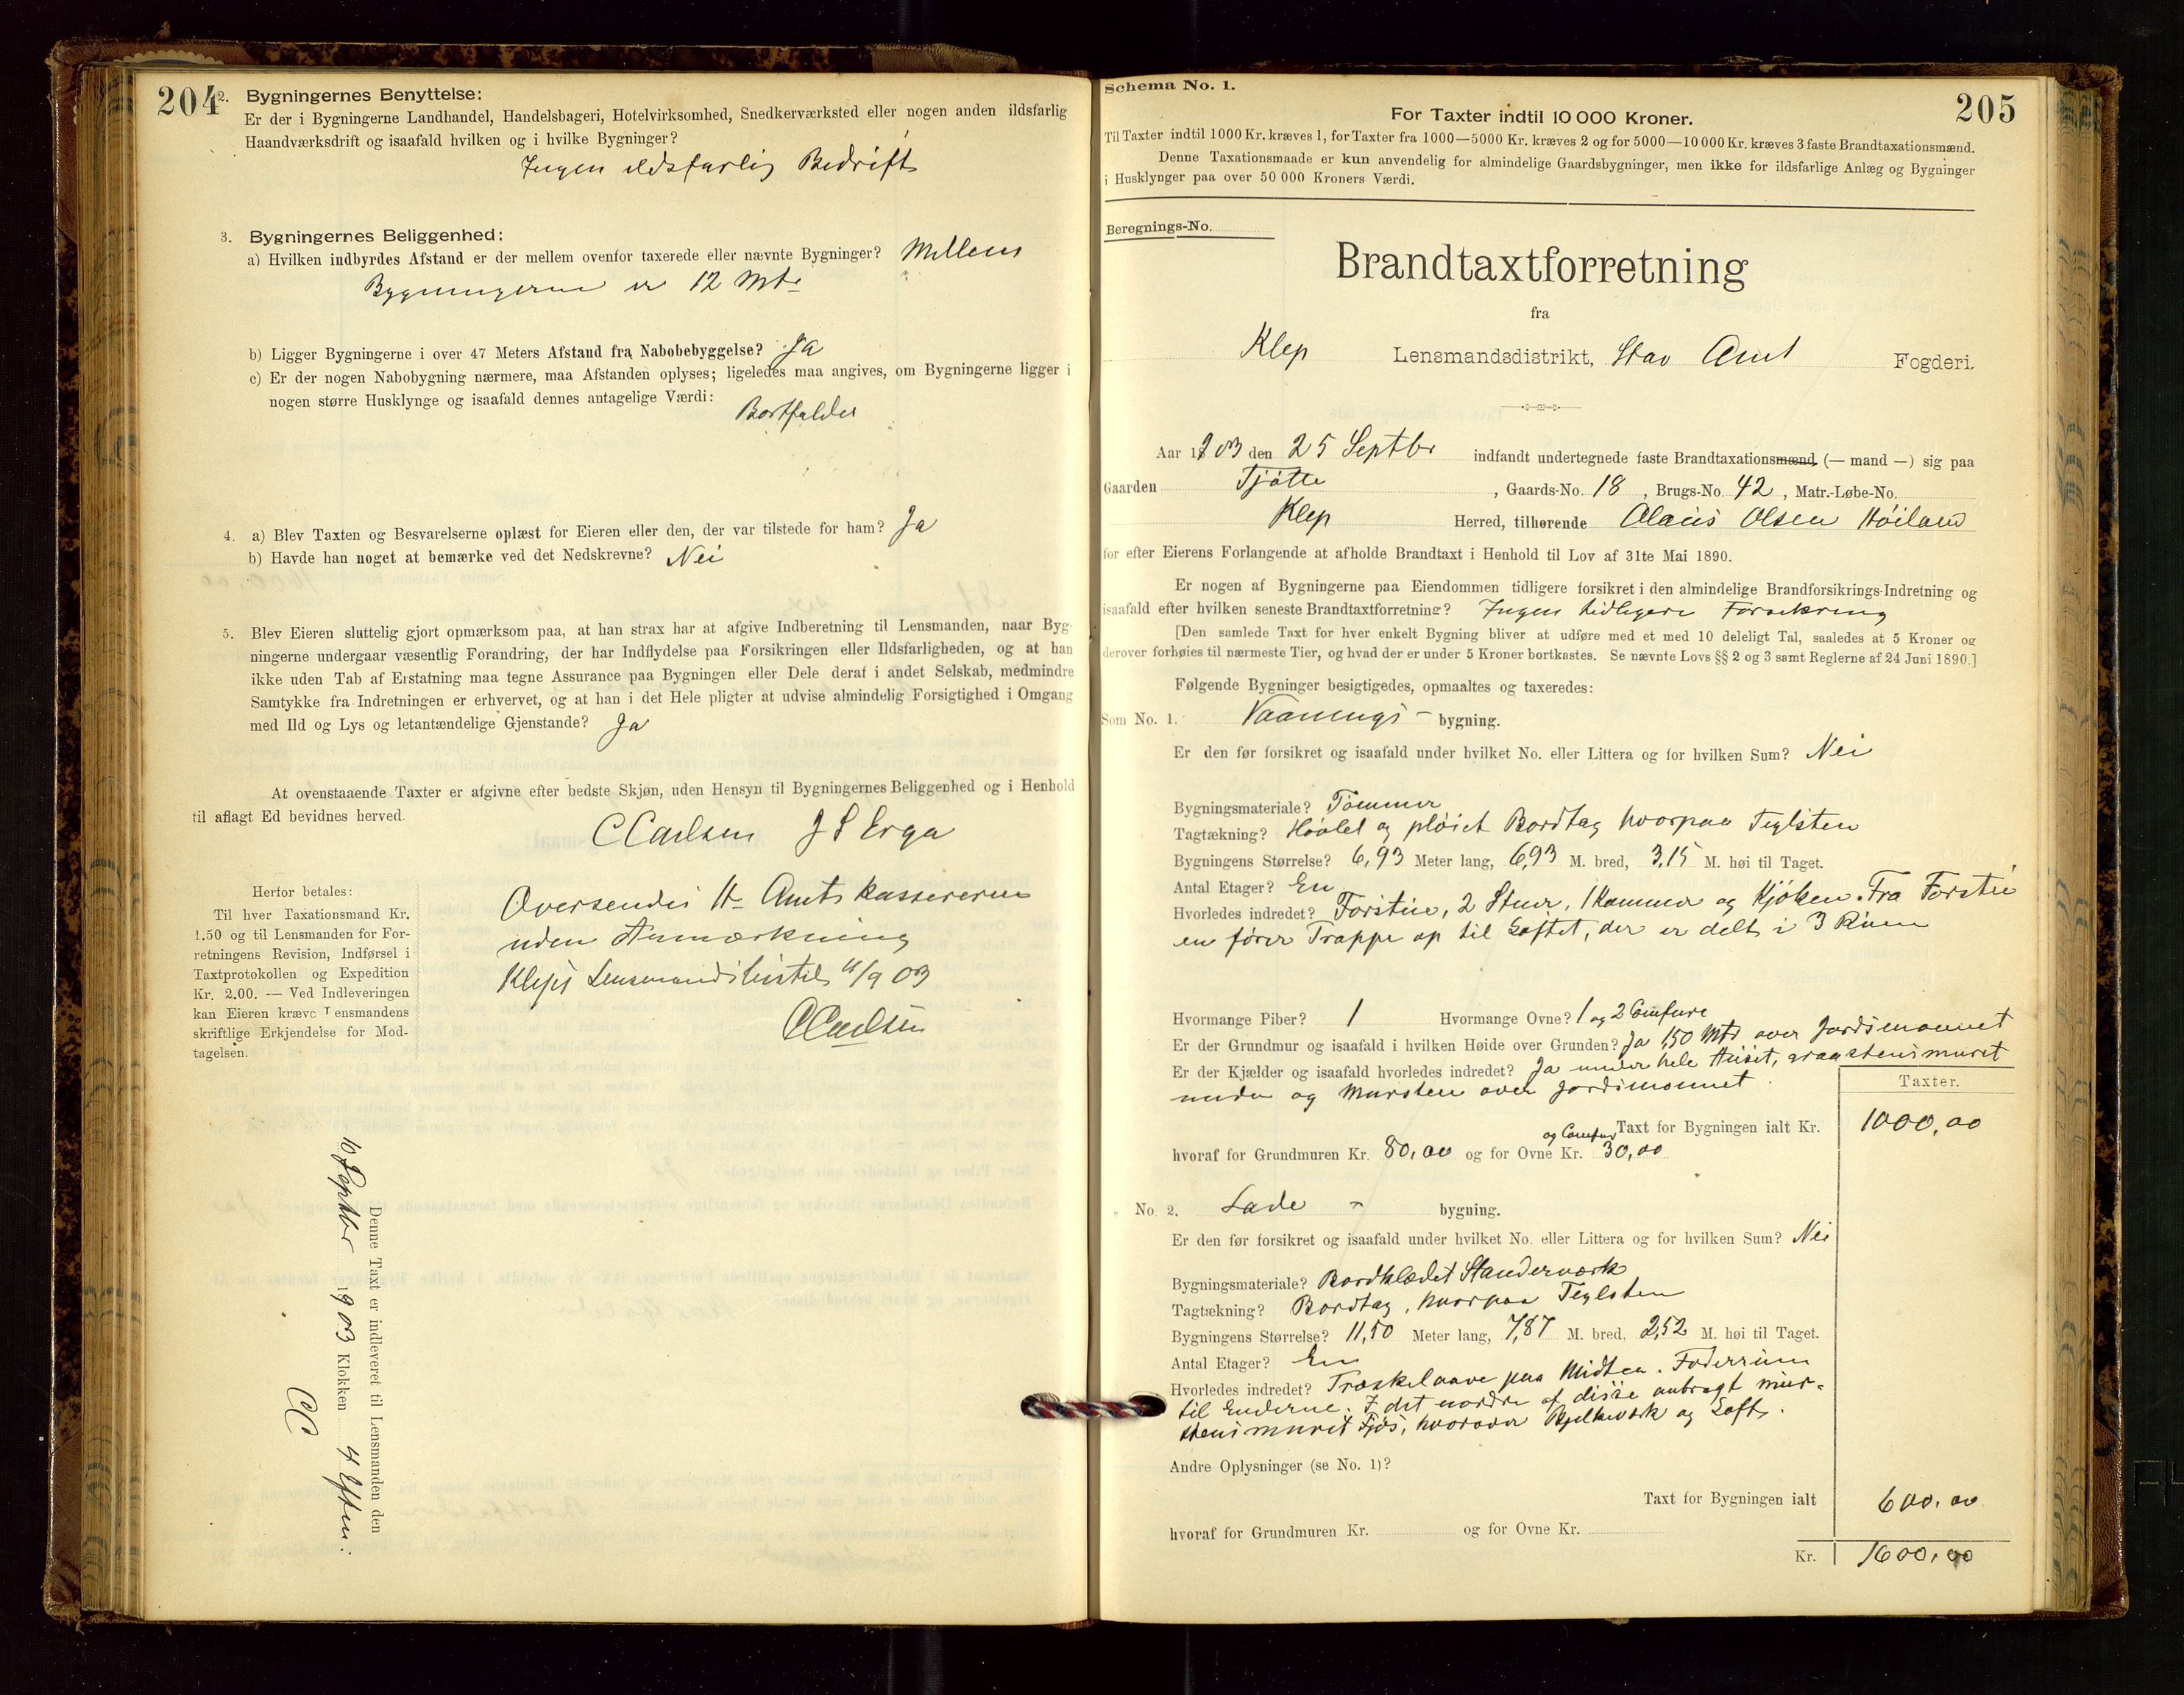 204
2. Bygningernes Benyttelse:
Er der i Bygningerne Landhandel, Handelsbageri, Hotelvirksomhed, Snedkerværksted eller nogen anden ildsfarlig
Haandværksdrift og isaafald hvilken og i hvilke Bygninger?
Ingen ildsfarlig Bedrift
3. Bygningernes Beliggenhed:
a) Hvilken indbyrdes Afstand er der mellem ovenfor taxerede eller nævnte Bygninger? Mellem
Bygningerne er 12 Mtr
b) Ligger Bygningerne i over 47 Meters Afstand fra Nabobebyggelse? Ja
c) Er der nogen Nabobygning nærmere, maa Afstanden oplyses; ligeledes maa angives, om Bygningerne ligger i
nogen større Husklynge og isaafald dennes antagelige Værdi:
Bortfalder
4. a) Blev Taxten og Besvarelserne oplæst for Eieren eller den, der var tilstede for ham? Ja
b) Havde han noget at bemærke ved det Nedskrevne? Nei
5. Blev Eieren sluttelig gjort opmærksom paa, at han strax har at afgive Indberetning til Lensmanden, naar Byg-
ningerne undergaar væsentlig Forandring, der har Indflydelse paa Forsikringen eller Ildsfarligheden, og at han
ikke uden Tab af Erstatning maa tegne Assurance paa Bygningen eller Dele deraf i andet Selskab, medmindre
Samtykke fra Indretningen er erhvervet, og at han i det Hele pligter at udvise almindelig Forsigtighed i Omgang
med Ild og Lys og letantændelige Gjenstande? Ja
At ovenstaaende Taxter er afgivne efter bedste Skjøn, uden Hensyn til Bygningernes Beliggenhed og i Henhold
til aflagt Ed bevidnes herved.
CCarlsen J S Erga
Herfor betales:
Til hver Taxationsmand Kr.
1.50 og til Lensmanden for For-
retningens Revision, Indførsel i
Taxtprotokollen og Expedition
Kr. 2.00. — Ved Indleveringen
kan Eieren kræve Lensmandens
skriftlige Erkjendelse for Mod-
tagelsen.
Oversendes Hr Amtskassereren
uden Anmærkning
Kleps Lensmandsbestil /9 03
CCarlsen
Denne Taxt er indleveret til Lensmanden den
10 Septbr 1903 Klokken 4 Eftm:
CC
Schema No. 1.
205
For Taxter indtil 10 000 Kroner.
Til Taxter indtil 1000 Kr. kræves 1, for Taxter fra 1000—5000 Kr. kræves 2 og for 5000—10 000 Kr. kræves 3 faste Brandtaxationsmænd.
Denne Taxationsmaade er kun anvendelig for almindelige Gaardsbygninger, men ikke for ildsfarlige Anlæg og Bygninger
i Husklynger paa over 50 000 Kroners Værdi.
Beregnings-No.
Brandtaxtforretning
fra
Klep Lensmandsdistrikt, Stav Amt Fogderi.
Aar 1903 den 25 Septbr indfandt undertegnede faste Brandtaxationsmænd (— mand —) sig paa
Gaarden Tjøtte, Gaards-No. 18, Brugs-No. 42, Matr.-Løbe-No.
Klep Herred, tilhørende Olaus Olsen Høiland
for efter Eierens Forlangende at afholde Brandtaxt i Henhold til Lov af 31te Mai 1890.
Er nogen af Bygningerne paa Eiendommen tidligere forsikret i den almindelige Brandforsikrings-Indretning og
isaafald efter hvilken seneste Brandtaxtforretning? Ingen tidligere Forsikring
[Den samlede Taxt for hver enkelt Bygning bliver at udføre med et med 10 deleligt Tal, saaledes at 5 Kroner og
derover forhøies til nærmeste Tier, og hvad der er under 5 Kroner bortkastes. Se nævnte Lovs §§ 2 og 3 samt Reglerne af 24 Juni 1890.]
Følgende Bygninger besigtigedes, opmaaltes og taxeredes:
Som No. 1. Vaanings- bygning.
Er den før forsikret og isaafald under hvilket No. eller Littera og for hvilken Sum? Nei
Bygningsmateriale? Tømmer
Tagtækning? Høvlet og pløiet Bordtag hvorpaa Teglsten
Bygningens Størrelse? 6,93 Meter lang, 6,93 M. bred, 3,15 M. høi til Taget.
Antal Etager? En
Hvorledes indredet? Forstue, 2 Stuer, 1 Kammer og Kjøken. Fra Forstu
en fører Trappe op til Loftet, der er delt i 3 Rum
Hvormange Piber? 1 Hvormange Ovne? 1 og 2 Comfure
Er der Grundmur og isaafald i hvilken Høide over Grunden? Ja 1,50 Mtr over Jordsmonnet
Er der Kjælder og isaafald hvorledes indredet? Ja under hele Huset, graastensmuret
under og Mursten over Jordsmonnet
Taxter.
Taxt for Bygningen ialt Kr. 1000,00
hvoraf for Grundmuren Kr. 80,00 og for Ovne og Comfur Kr. 30,00
" No. 2. Lade - bygning.
Er den før forsikret og isaafald under hvilket No. eller Littera og for hvilken Sum? Nei
Bygningsmateriale? Bordklædet Standerværk
Tagtækning? Bordtag, hvorpaa Teglsten
Bygningens Størrelse? 11,50 Meter lang, 7,87 M. bred, 2,52 M. høi til Taget.
Antal Etager? En
Hvorledes indredet? Træskelaave paa Midten. Foderrum
til Enderne. I det nordre af disse anbragt mur-
stensmuret Fjøs, hvorover Bjelkeværk og Loft.
Andre Oplysninger (se No. 1)?
Taxt for Bygningen ialt 600,00
hvoraf for Grundmuren Kr. og for Ovne Kr.
Kr. 1600,00